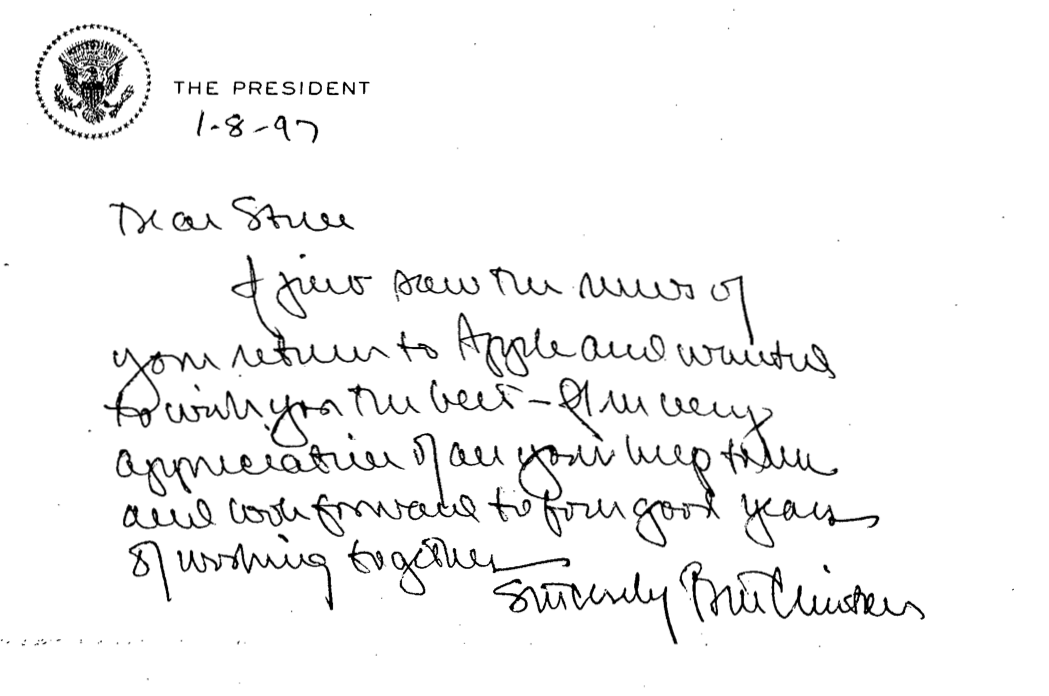 THE PRESIDENT
1-8-97
Dear Steve
I just saw the news of
your return to Apple and wanted
to wish you the best - I'm very
appreciative of all your help to me
and look forward to four good years
of working together
Sincerely Bill Clinton